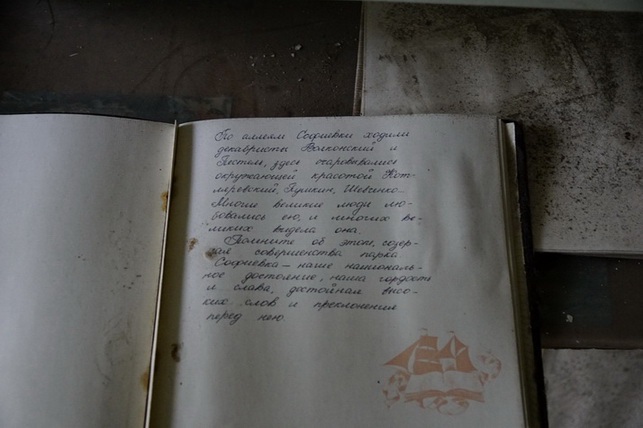 По аллеям Софиевки ходили
декабристы Волконский и
Пестель, здесь очаровывались
окружающей красотой Кот-
ляревский, Пушкин, Шевченко.
Многие великие люди лю-
бовались ею, и многих ве-
ликих видела она.
Помните об этом, созер-
цая совершенства парка.
Софиевка — наше националь-
ное достояние, наша гордость
и слава, достойная высо-
ких слов и преклонения
перед нею.